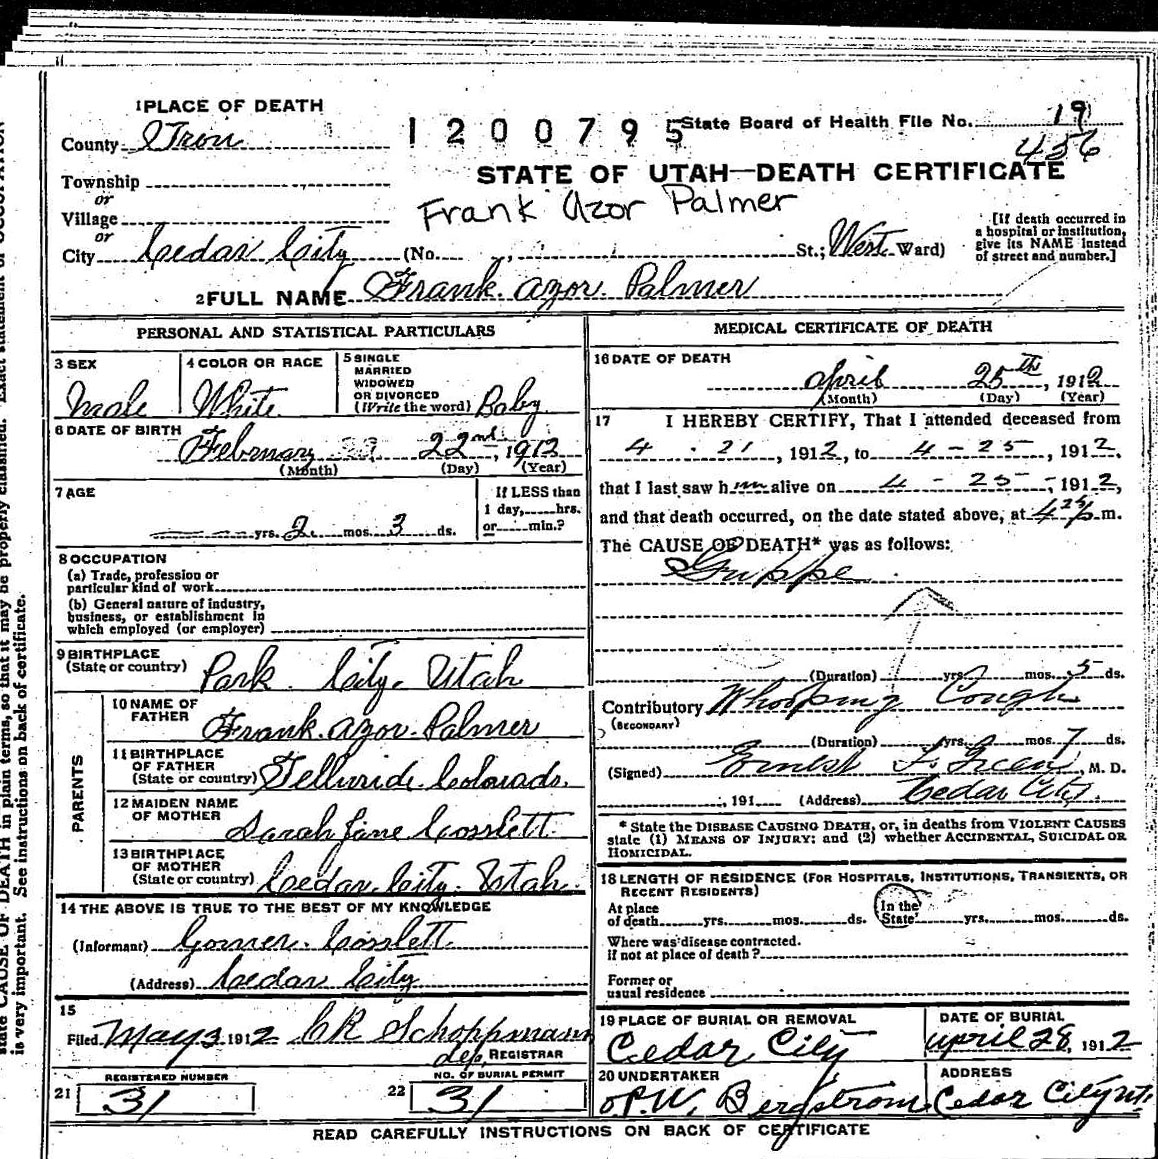 1 PLACE OF DEATH
County Iron
1200795
State Board of Health File No. 19
456
STATE OF UTAH—DEATH CERTIFICATE
Township
or
Village
or
City Cedar City (No. St.; West Ward)
Frank Azor Palmer
[If death occurred in a hospital or institution, give its NAME instead of street and number.]
2 FULL NAME Frank Azor Palmer
PERSONAL AND STATISTICAL PARTICULARS
3 SEX
Male
4 COLOR OR RACE
White
5 SINGLE
MARRIED
WIDOWED
OR DIVORCED
(Write the word) Baby
6 DATE OF BIRTH
February 22nd, 1912
(Month) (Day) (Year)
7 AGE
yrs. 2 mos. 3 ds.
If LESS than
1 day, hrs.
or min.?
8 OCCUPATION
(a) Trade, profession or
particular kind of work
(b) General nature of industry,
business, or establishment in
which employed (or employer)
9 BIRTHPLACE
(State or country) Park City, Utah
PARENTS
10 NAME OF
FATHER Frank Azor Palmer
11 BIRTHPLACE
OF FATHER
(State or country) Telluride Colorado.
12 MAIDEN NAME
OF MOTHER Sarah Jane Cosslett
13 BIRTHPLACE
OF MOTHER
(State or country) Cedar City, Utah
14 THE ABOVE IS TRUE TO THE BEST OF MY KNOWLEDGE
(Informant) Gomer Cosslett
(Address) Cedar City
15
Filed May 3 1912 CR Schoppmann
dep. REGISTRAR
REGISTERED NUMBER
21 31
NO. OF BURIAL PERMIT
22 31
MEDICAL CERTIFICATE OF DEATH
16 DATE OF DEATH
April 25th, 1912
(Month) (Day) (Year)
17 I HEREBY CERTIFY, That I attended deceased from
4 - 21, 1912, to 4 - 25, 1912.
that I last saw him alive on 4 - 25 - 1912,
and that death occurred, on the date stated above, at 4 25 p m.
The CAUSE OF DEATH* was as follows:
Grippe
(Duration) yrs. mos. 5 ds.
Contributory Whooping Cough
(SECONDARY)
(Duration) yrs. mos. 7 ds.
(Signed) Ernest F. Green, M. D.
, 191 (Address) Cedar City
* State the DISEASE CAUSING DEATH, or, in deaths from VIOLENT CAUSES
state (1) MEANS OF INJURY; and (2) whether ACCIDENTAL, SUICIDAL OR
HOMICIDAL.
18 LENGTH OF RESIDENCE (FOR HOSPITALS, INSTITUTIONS, TRANSIENTS, OR
RECENT RESIDENTS)
At place In the
of death yrs. mos. ds. State yrs. mos. ds.
Where was disease contracted.
if not at place of death?
Former or
usual residence
19 PLACE OF BURIAL OR REMOVAL
Cedar City
DATE OF BURIAL
April 28, 1912
20 UNDERTAKER
P.W. Bergstrom
ADDRESS
Cedar City Ut.
READ CAREFULLY INSTRUCTIONS ON BACK OF CERTIFICATE
state CAUSE OF DEATH in plain terms, so that it may be properly classified. Exact statement of OCCUPATION
is very important. See instructions on back of certificate.